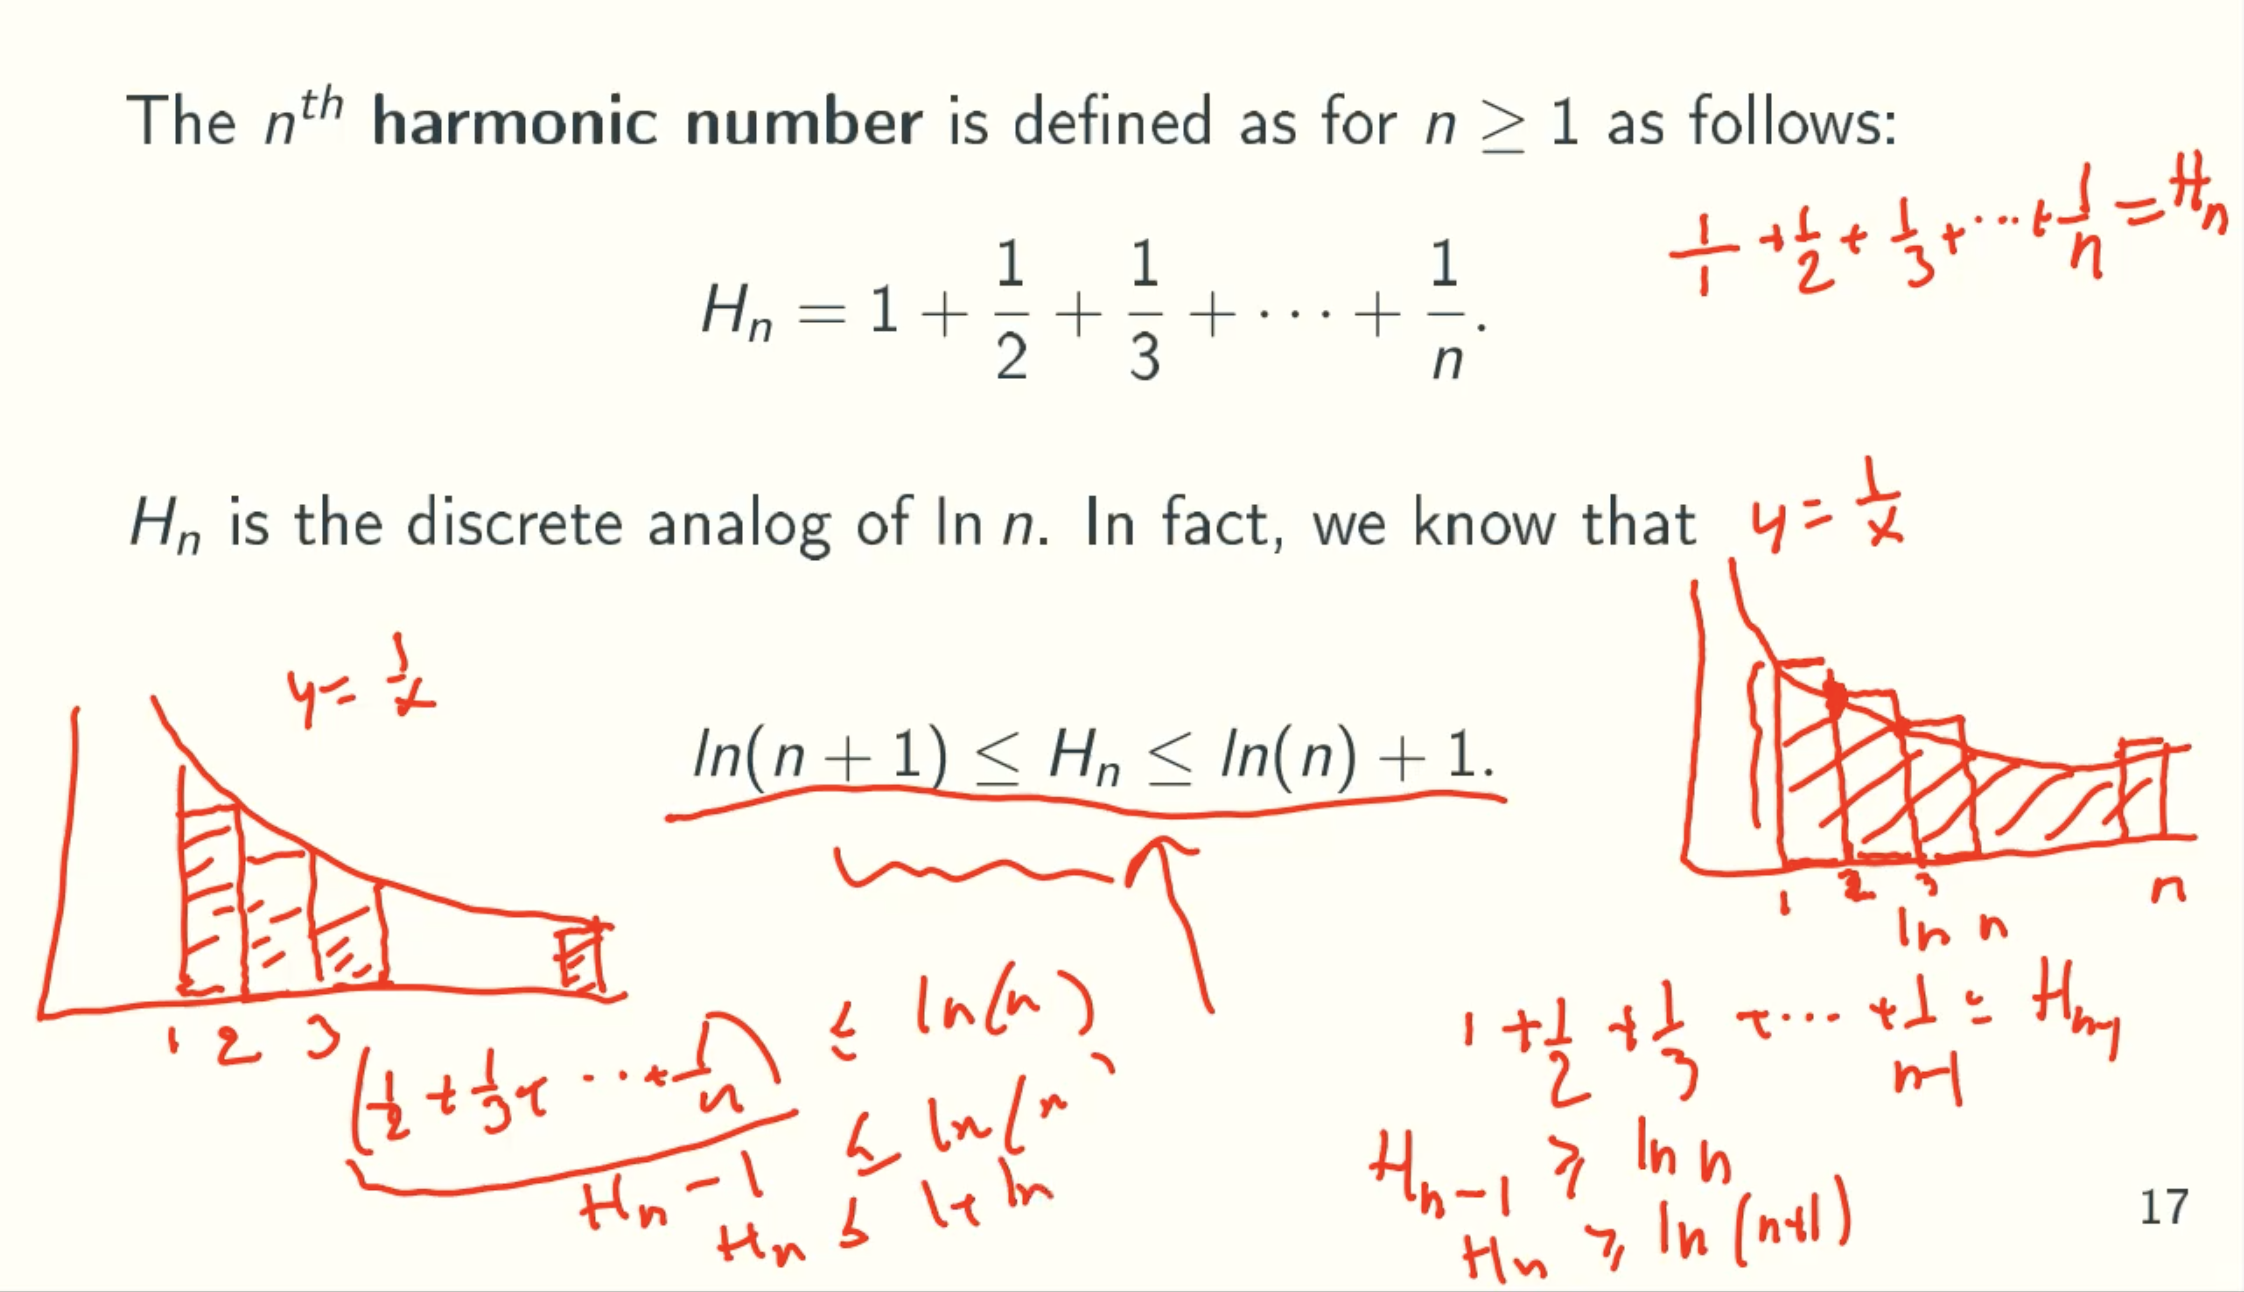 The nᵗʰ harmonic number is defined as for n ≥ 1 as follows:
1/1 + 1/2 + 1/3 + ... + 1/n = Hₙ
Hₙ = 1 + 1/2 + 1/3 + ··· + 1/n.
Hₙ is the discrete analog of ln n. In fact, we know that
y = 1/x
y = 1/x
ln(n + 1) ≤ Hₙ ≤ ln(n) + 1.
1 2 3
1 2 3 n
ln n
(1/2 + 1/3 + ... + 1/n) ≤ ln(n)
Hₙ - 1 ≤ ln(n)
Hₙ ≤ 1 + ln
1 + 1/2 + 1/3 + ... + 1/n-1 = Hₙ₋₁
Hₙ₋₁ ≥ ln n
Hₙ ≥ ln(n+1)
17